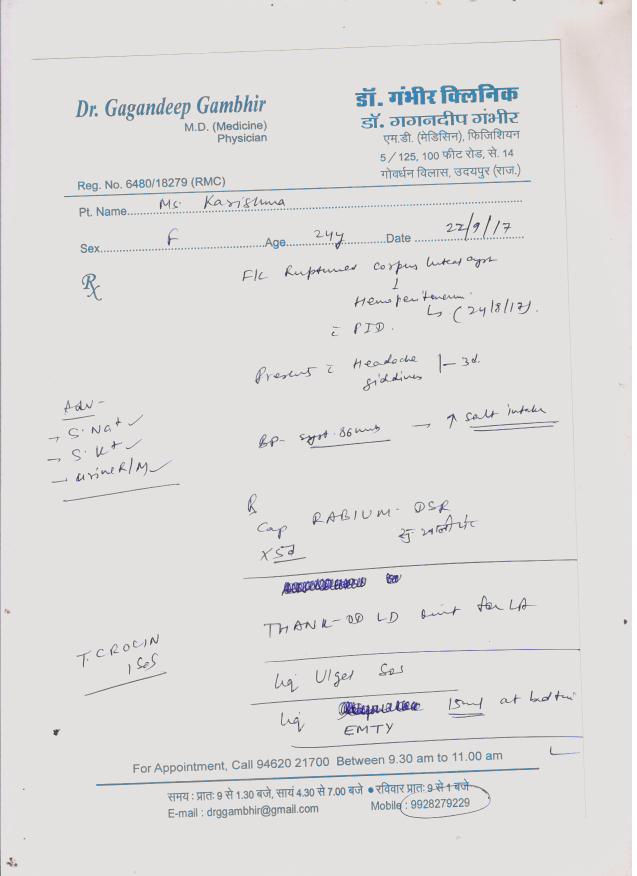 Dr. Gagandeep Gambhir
M.D. (Medicine)
Physician
Reg. No. 6480/18279 (RMC)
डॉ. गंभीर क्लिनिक
डॉ. गगनदीप गंभीर
एम.डी. (मेडिसिन), फिजिशियन
5/125, 100 फीट रोड, से. 14
गोवर्धन विलास, उदयपुर (राज.)
Pt. Name Ms. Karishma
Sex F Age 24y Date 22/9/17
Rx
F/c Ruptured corpus luteal cyst
↓
Hemoperitoneum
↳ (24/8/17).
c̄ PID.
Present c̄ Headache
giddines |— 3d.
Adv -
→ S. Na+ ✓
→ S. K+ ✓
→ urine R/M ✓
BP- syst. 86 → ↑ salt intake
Cap RABIUM-DSR
X 5d
THANK-OD LD oint for LA
T. CROCIN
1 SOS
liq Ulgel SOS
liq 15ml at bedtime
EMTY
For Appointment, Call 94620 21700 Between 9.30 am to 11.00 am
समय : प्रातः 9 से 1.30 बजे, सायं 4.30 से 7.00 बजे ● रविवार प्रातः 9 से 1 बजे
E-mail : drggambhir@gmail.com Mobile : 9928279229